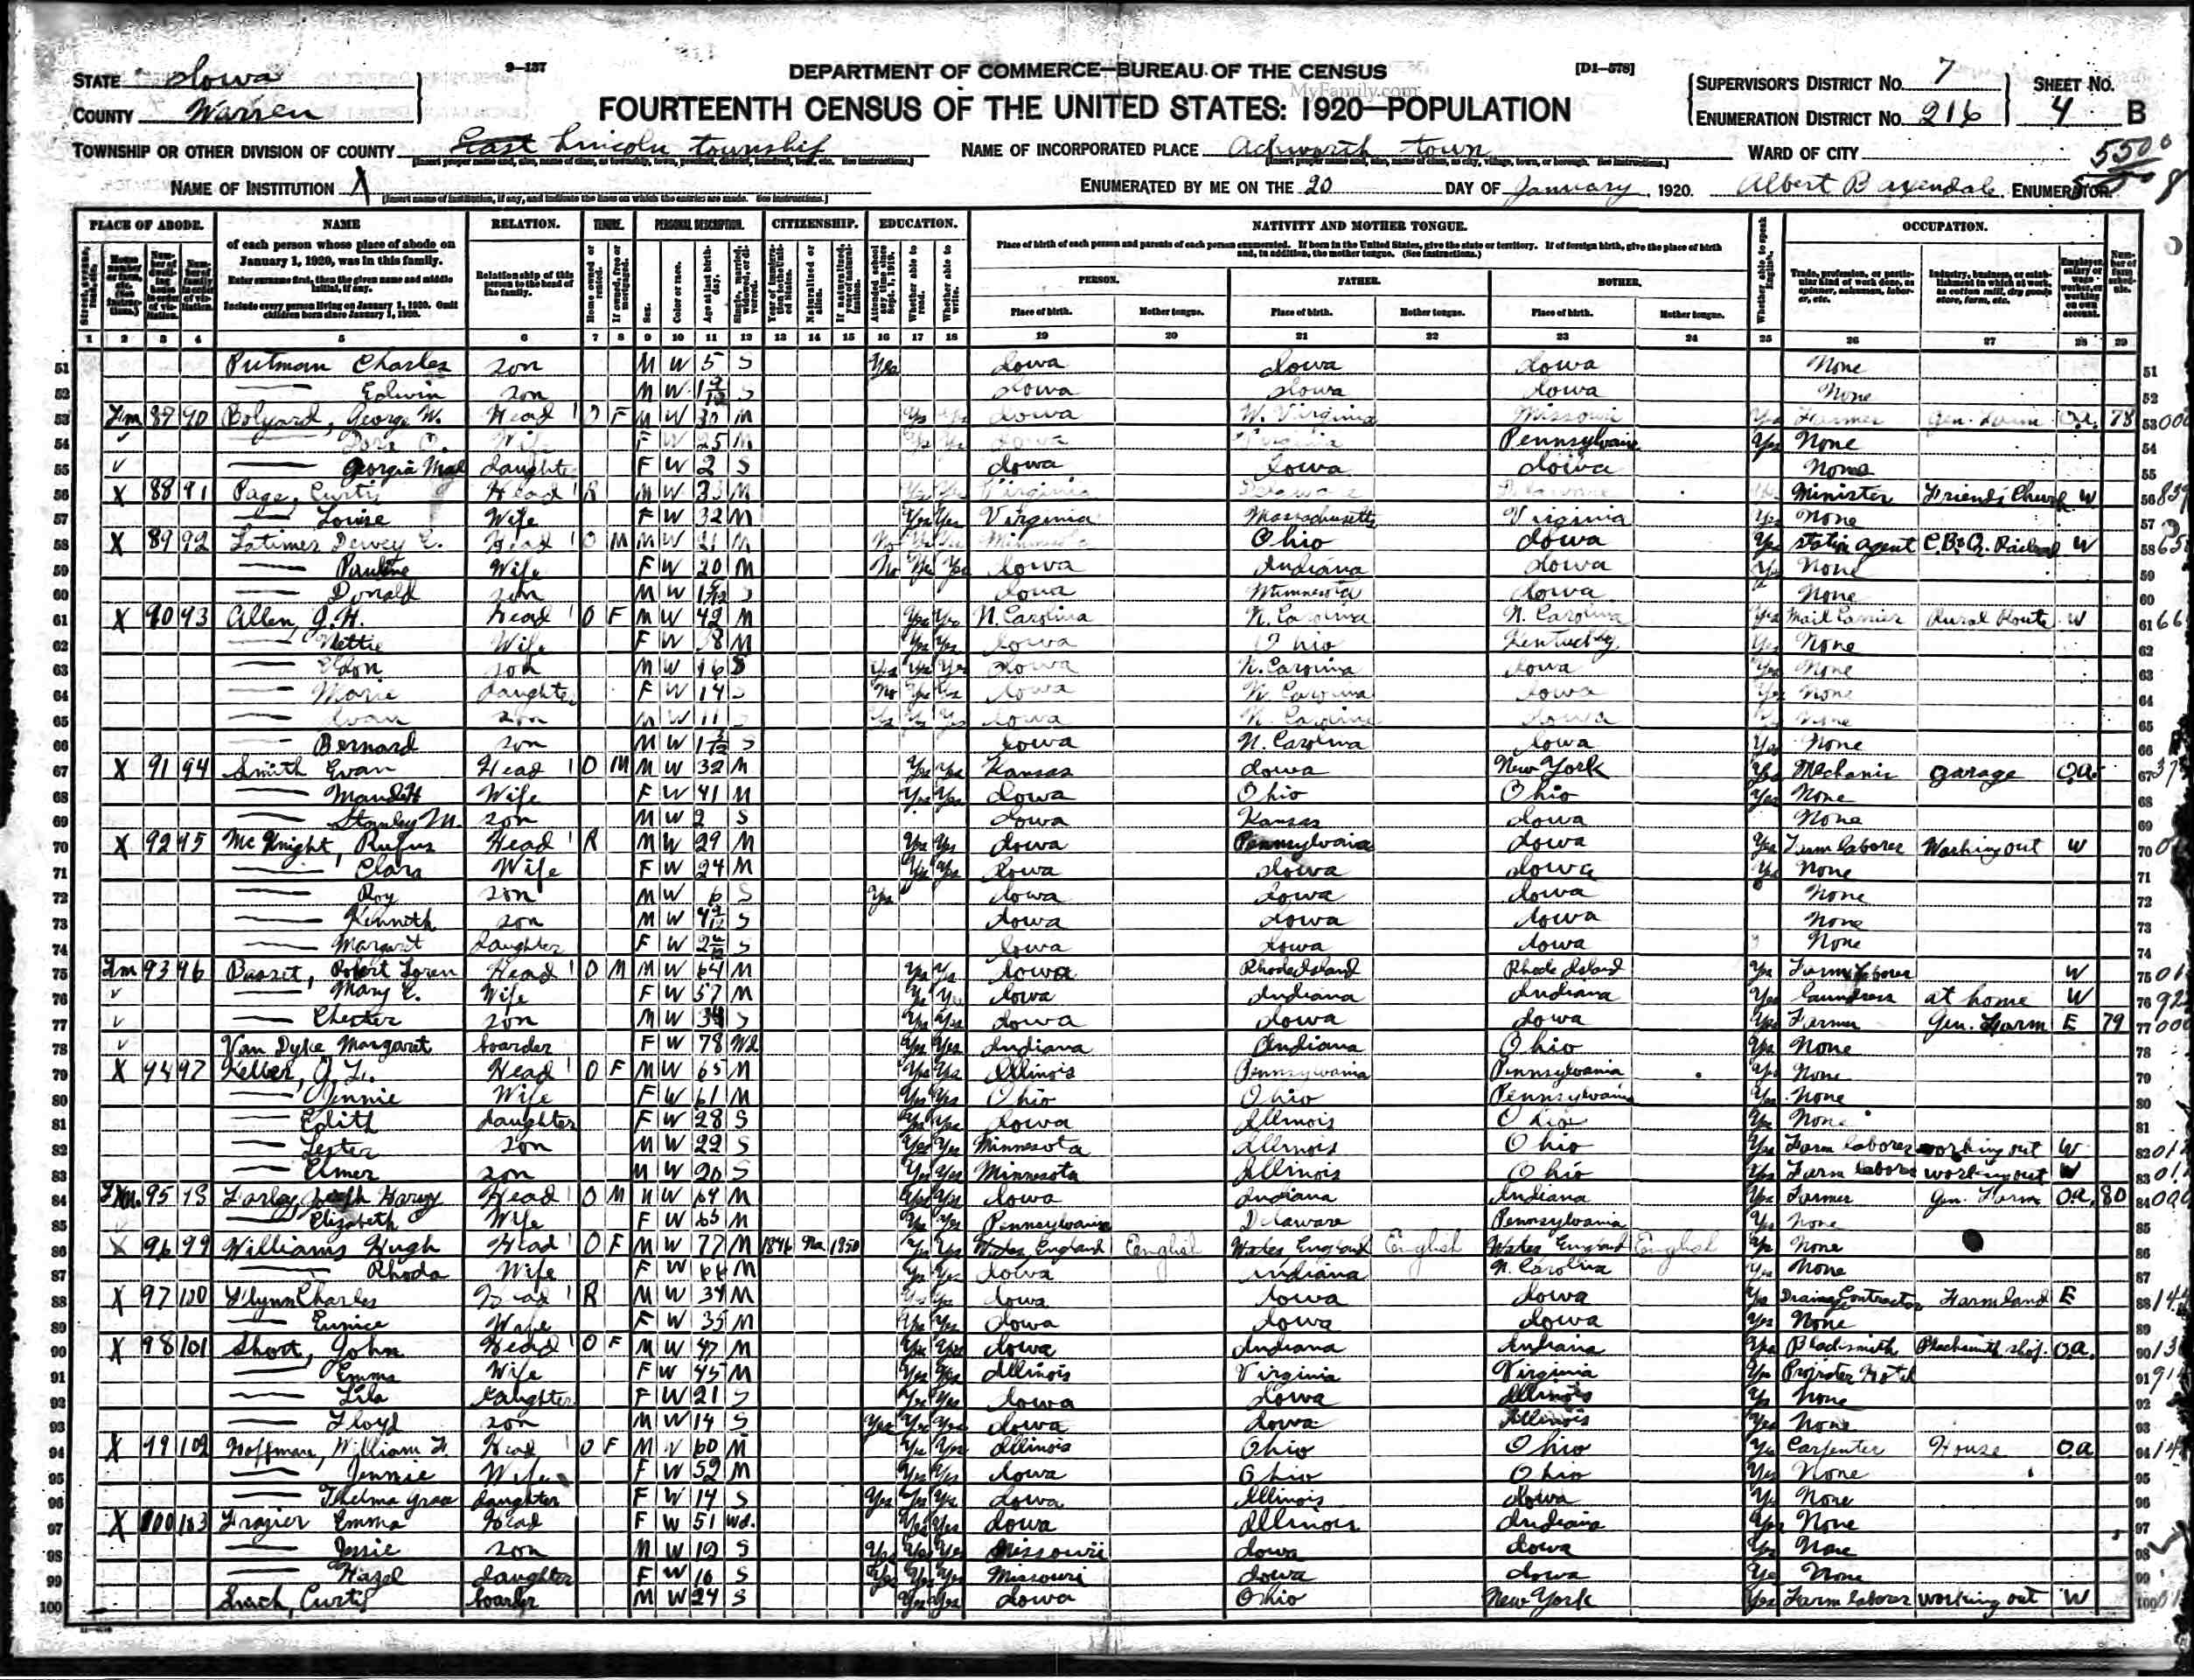 9—137
DEPARTMENT OF COMMERCE—BUREAU OF THE CENSUS
[D1—578]
STATE Iowa
COUNTY Warren
MyFamily.com
FOURTEENTH CENSUS OF THE UNITED STATES: 1920—POPULATION
SUPERVISOR'S DISTRICT No. 7
ENUMERATION DISTRICT No. 216
SHEET No. 4 B
TOWNSHIP OR OTHER DIVISION OF COUNTY East Lincoln township
NAME OF INCORPORATED PLACE Ackworth town
WARD OF CITY
5500
NAME OF INSTITUTION X
ENUMERATED BY ME ON THE 20 DAY OF January, 1920. Albert Baxendale ENUMERATOR.
PLACE OF ABODE. NAME RELATION. TENURE. PERSONAL DESCRIPTION. CITIZENSHIP. EDUCATION. NATIVITY AND MOTHER TONGUE. OCCUPATION.
of each person whose place of abode on January 1, 1920, was in this family.
Enter surname first, then the given name and middle initial, if any.
Include every person living on January 1, 1920. Omit children born since January 1, 1920.
Relationship of this person to the head of the family.
Place of birth of each person and parents of each person enumerated. If born in the United States, give the state or territory. If of foreign birth, give the place of birth and, in addition, the mother tongue. (See instructions.)
PERSON. FATHER. MOTHER.
Place of birth. Mother tongue. Place of birth. Mother tongue. Place of birth. Mother tongue.
1 2 3 4 5 6 7 8 9 10 11 12 13 14 15 16 17 18 19 20 21 22 23 24 25 26 27 28 29
51 Putman Charles son M W 5 S Yes Iowa Iowa Iowa None 51
52 Edwin son M W S Iowa Iowa Iowa None 52
53 Fm 87 90 Bolyard, George W. Head O F M W 30 M Yes Yes Iowa W. Virginia Missouri Yes Farmer Gen. Farm O.A. 78 53
54 Wife F W 25 M Yes Yes Iowa Virginia Pennsylvania Yes None 54
55 Georgia Mae daughter F W 2 S Iowa Iowa Iowa None 55
56 X 88 91 Page, Curtis Head R M W 33 M Yes Yes Virginia Minister Friends Church W 56
57 Louise Wife F W 32 M Yes Yes Virginia Massachusetts Virginia Yes None 57
58 X 89 92 Latimer Dewey E. Head O M M W 21 M No Yes Yes Minnesota Ohio Iowa Yes Station agent C.B.&Q. Railroad W 58
59 Pauline Wife F W 20 M No Yes Yes Iowa Indiana Iowa Yes None 59
60 Donald son M W S Iowa Minnesota Iowa None 60
61 X 90 93 Allen, J.H. Head O F M W 42 M Yes Yes N. Carolina N. Carolina N. Carolina Yes Mail Carrier Rural Route W 61
62 Nettie Wife F W 38 M Yes Yes Iowa Ohio Kentucky Yes None 62
63 Eldon son M W 16 S Yes Yes Yes Iowa N. Carolina Iowa Yes None 63
64 Marie daughter F W 14 S No Yes Yes Iowa N. Carolina Iowa Yes None 64
65 son M W 11 S Yes Yes Yes Iowa N. Carolina Iowa None 65
66 Bernard son M W S Iowa N. Carolina Iowa Yes None 66
67 X 91 94 Smith Evan Head O M M W 32 M Yes Yes Kansas Iowa New York Yes Mechanic garage O.A. 67
68 Maude H Wife F W 41 M Yes Yes Iowa Ohio Ohio Yes None 68
69 Stanley M. son M W 2 S Iowa Kansas Iowa None 69
70 X 92 95 McKnight, Rufus Head R M W 29 M Yes Yes Iowa Pennsylvania Iowa Yes Farm laborer Working out W 70
71 Clara Wife F W 24 M Yes Yes Iowa Iowa Iowa Yes None 71
72 Roy son M W 6 S Yes Iowa Iowa Iowa None 72
73 Kenneth son M W S Iowa Iowa Iowa None 73
74 Margaret daughter F W S Iowa Iowa Iowa None 74
75 Fm 93 96 Basset, Robert Loren Head O M M W 64 M Yes Yes Iowa Rhode Island Rhode Island Yes Farm laborer W 75
76 Mary E. Wife F W 57 M Yes Yes Iowa Indiana Indiana Yes laundress at home W 76
77 Chester son M W 34 S Yes Yes Iowa Iowa Iowa Yes Farmer Gen. Farm E 79 77
78 Van Dyke Margaret boarder F W 78 Wd Yes Yes Indiana Indiana Ohio Yes None 78
79 X 94 97 Keller, J.L. Head O F M W 65 M Yes Yes Illinois Pennsylvania Pennsylvania Yes None 79
80 Jennie Wife F W 61 M Yes Yes Ohio Ohio Pennsylvania Yes None 80
81 Edith daughter F W 28 S Yes Yes Iowa Illinois Ohio Yes None 81
82 Lester son M W 22 S Yes Yes Minnesota Illinois Ohio Yes Farm laborer working out W 82
83 Elmer son M W 20 S Yes Yes Minnesota Illinois Ohio Yes Farm laborer working out W 83
84 95 98 Farley Joseph Harvy Head O M M W 64 M Yes Yes Iowa Indiana Indiana Yes Farmer Gen. Farm O.A. 80 84
85 Elizabeth Wife F W 65 M Yes Yes Pennsylvania Delaware Pennsylvania Yes None 85
86 X 96 99 Williams Hugh Head O F M W 77 M 1846 Na 1850 Yes Yes Wales, England English Wales, England English Wales, England English Yes None 86
87 Rhoda Wife F W M Yes Yes Iowa Indiana N. Carolina Yes None 87
88 X 97 100 Flynn Charles Head R M W 34 M Yes Yes Iowa Iowa Iowa Yes Drainage Contractor Farm land E 88
89 Eunice Wife F W 35 M Yes Yes Iowa Iowa Iowa Yes None 89
90 X 98 101 Short, John Head O F M W 47 M Yes Yes Iowa Indiana Indiana Yes Blacksmith Blacksmith shop O.A. 90
91 Emma Wife F W 45 M Yes Yes Illinois Virginia Virginia Yes Hotel 91
92 Lila daughter F W 21 S Yes Yes Iowa Iowa Illinois Yes None 92
93 Floyd son M W 14 S Yes Yes Yes Iowa Iowa Illinois Yes None 93
94 X 99 102 Hoffman, William F. Head O F M W 60 M Yes Yes Illinois Ohio Ohio Yes Carpenter House O.A. 94
95 Jennie Wife F W 52 M Yes Yes Iowa Ohio Ohio Yes None 95
96 Thelma Grace daughter F W 14 S Yes Yes Yes Iowa Illinois Iowa Yes None 96
97 X 100 103 Frazier Emma Head F W 51 Wd. Yes Yes Iowa Illinois Indiana Yes None 97
98 Jessie son M W 19 S Yes Yes Yes Missouri Iowa Iowa Yes None 98
99 Hazel daughter F W 16 S Yes Yes Yes Missouri Iowa Iowa Yes None 99
100 Curtis boarder M W 24 S Yes Yes Iowa Ohio New York Yes Farm laborer working out W 100